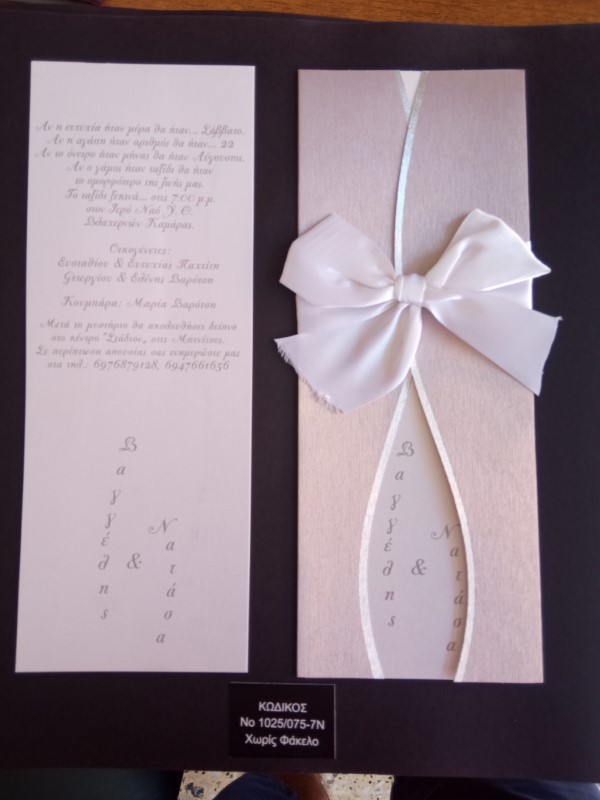 Αν η ευτυχία ήταν μέρα θα ήταν... Σάββατο.
Αν η αγάπη ήταν αριθμός θα ήταν... 22
Αν το όνειρο ήταν μήνας θα ήταν Αύγουστος.
Αν ο γάμος ήταν ταξίδι θα ήταν
το ομορφότερο της ζωής μας.
Το ταξίδι ξεκινά... στις 7:00 μ.μ.
στον Ιερό Ναό Υ. Θ.
Βλαχερνών Καμάρας.
Οικογένειες:
Ευσταθίου & Ευτυχίας Παχίτη
Γεωργίου & Ελένης Βαρότση
Κουμπάρα: Μαρία Βαρότση
Μετά το μυστήριο θα ακολουθήσει δείπνο
στο κέντρο "Στάδιο", στις
Σε περίπτωση απουσίας σας ενημερώστε μας
στα τηλ.: 6976879128, 6947661656
Βαγγέλης
&
Νατάσα
Βαγγέλης
&
Νατάσα
ΚΩΔΙΚΟΣ
Νο 1025/075-7Ν
Χωρίς Φάκελο